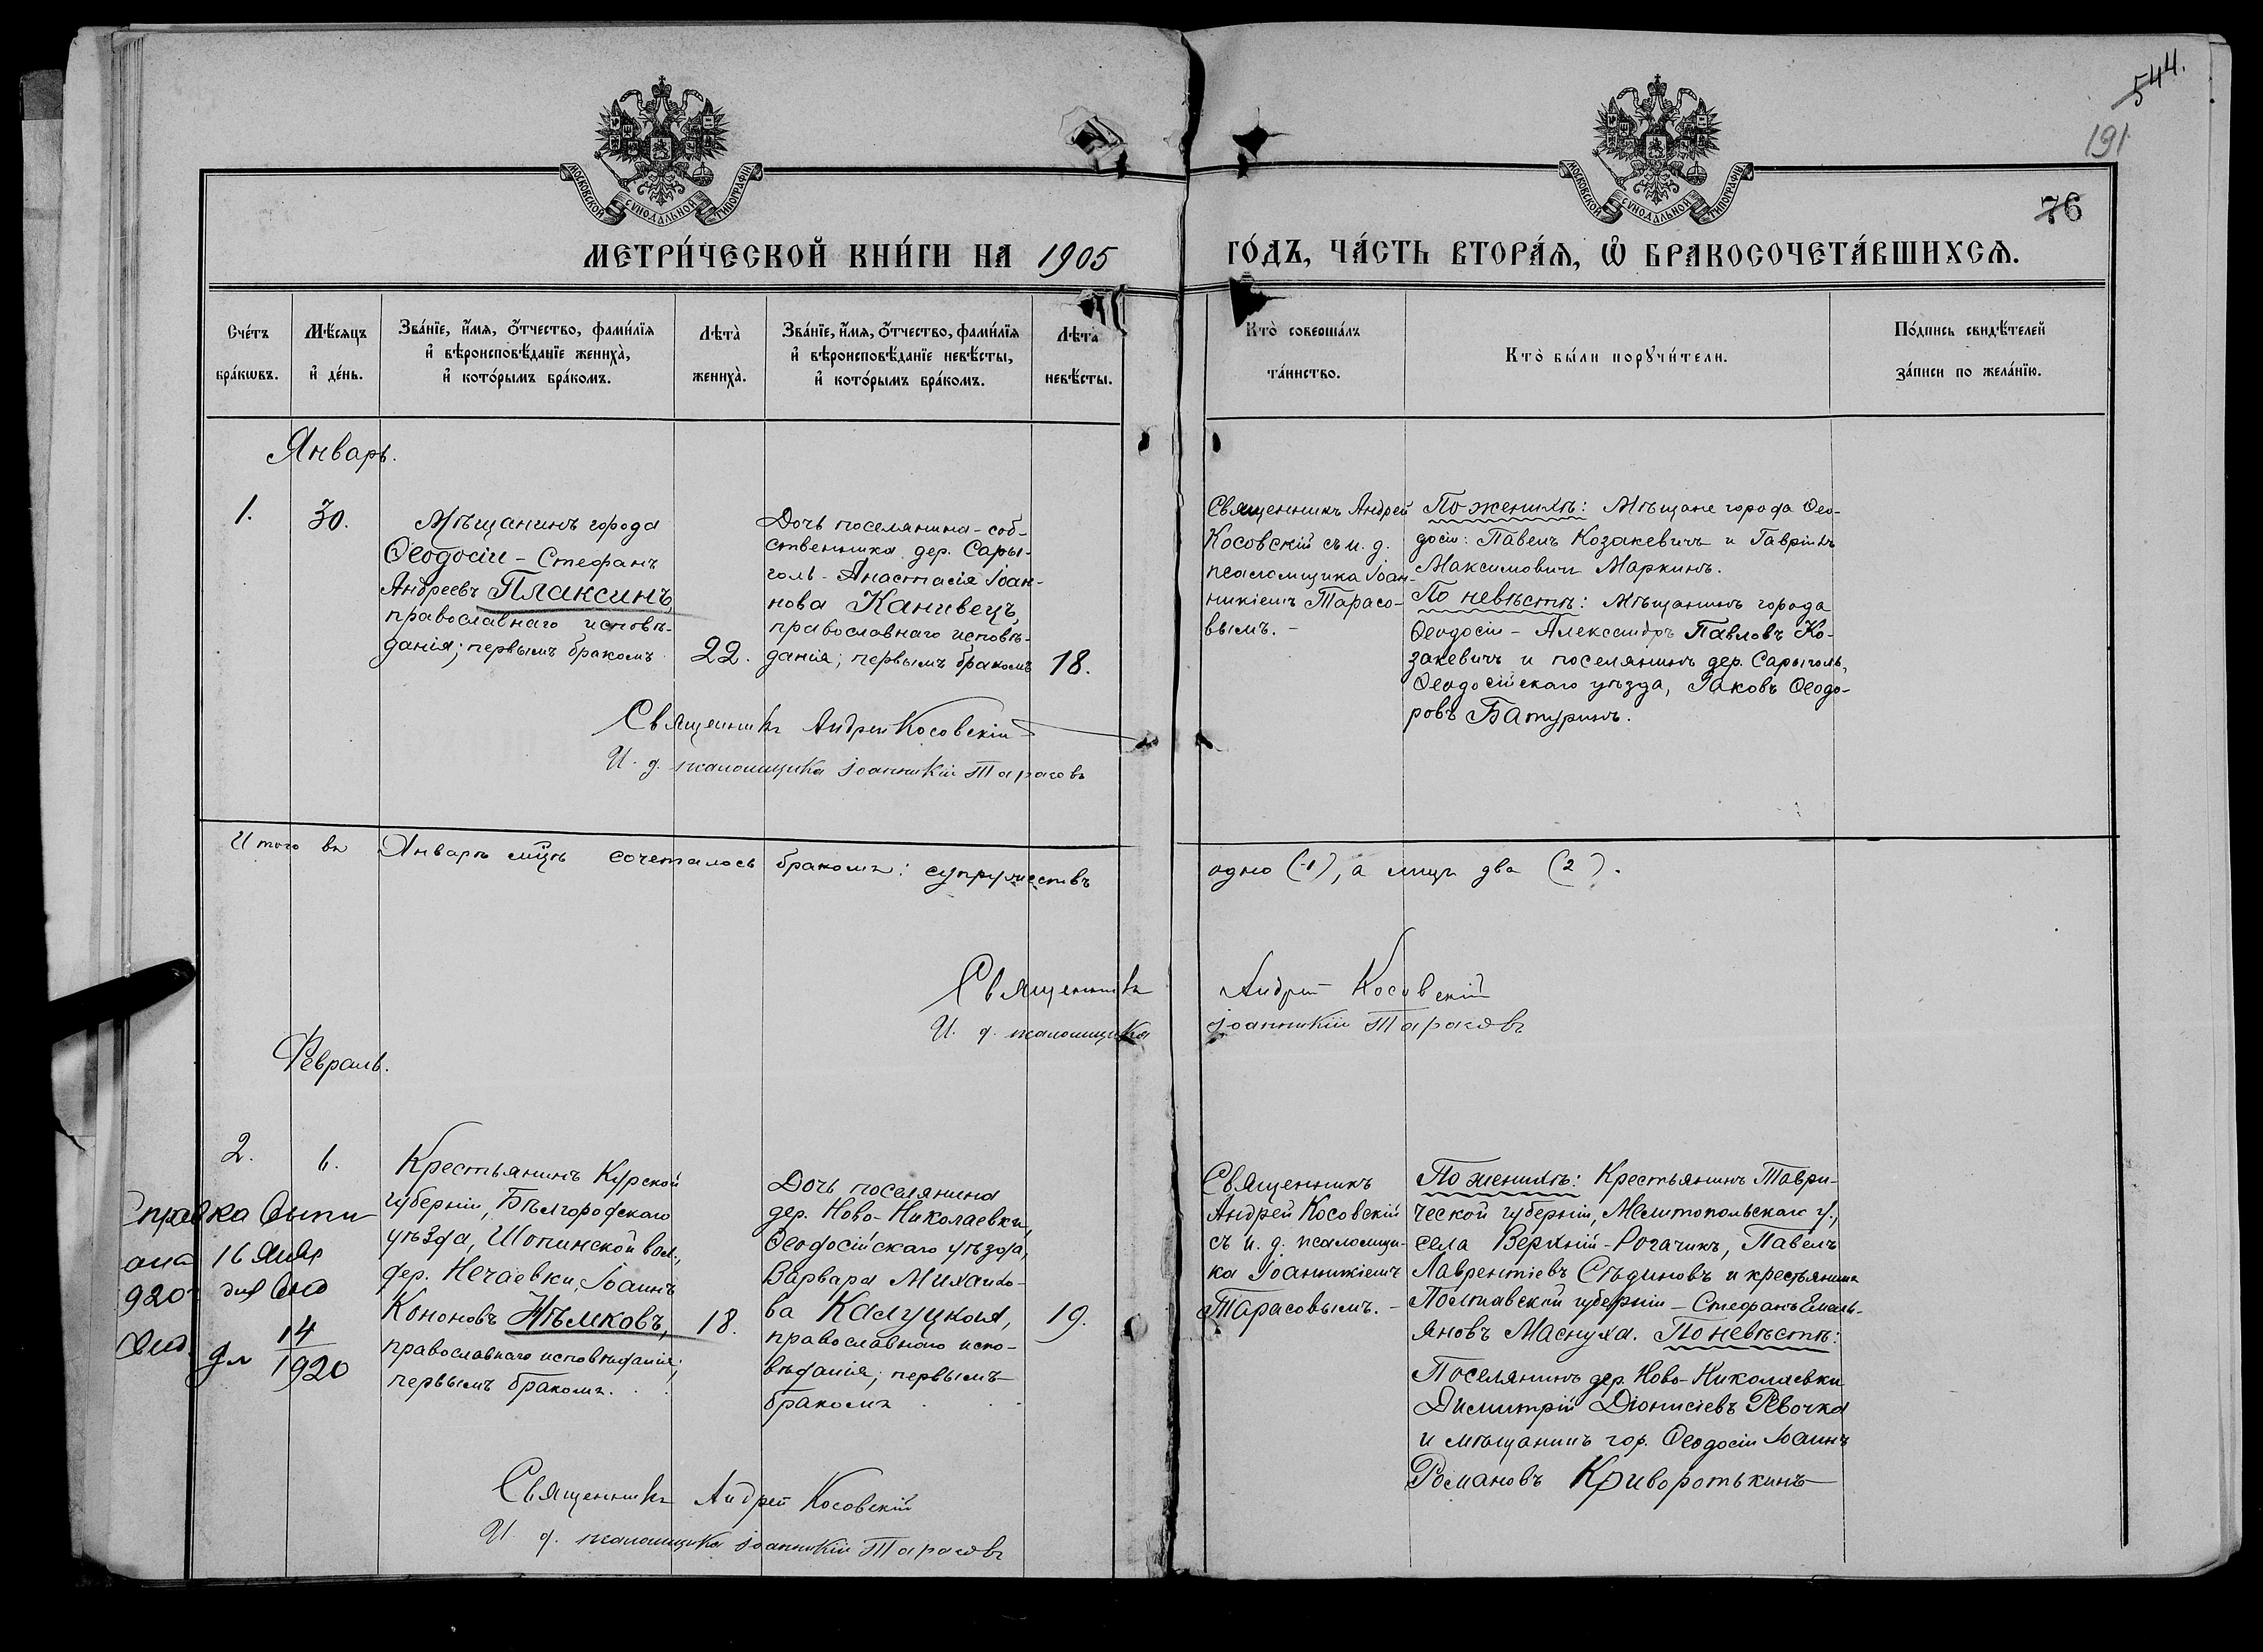 544.
191
76
МОСКОВСКОЙ СѴНОДАЛЬНОЙ ТИПОГРАФІИ
МОСКОВСКОЙ СѴНОДАЛЬНОЙ ТИПОГРАФІИ
МЕТРИ́ЧЕСКОЙ КНИ́ГИ НА 1905
ГО́ДЪ, ЧА́СТЬ ВТОРА́Ѧ, Ѽ БРАКОСОЧЕТА́ВШИХСѦ.
Сче́тъ
бра́кѡвъ.
Мѣ́сяцъ
и҆ де́нь.
Зва́нїе, и҆́мя, ѻ҆́тчество, фами́лїя
и҆ вѣроисповѣ́данїе женихà,
и҆ кото́рымъ бра́комъ.
Лѣ́та̀
женихà.
Зва́нїе, и҆́мя, ѻ҆́тчество, фами́лїя
и҆ вѣроисповѣ́данїе невѣ́сты,
и҆ кото́рымъ бра́комъ.
Лѣ́та̀
невѣ́сты.
Кто̀ совершáлъ
та́инство.
Кто̀ бы́ли порꙋчи́тели.
По́дпись свидѣ́телей
за́писи по жела́нїю.
Январь.
1.
30.
Мѣщанинъ города
Ѳеодосіи - Стефанъ
Андреевъ Плаксинъ,
православнаго исповѣ-
данія; первымъ бракомъ
22.
Дочь поселянина - соб-
ственника дер. Сары-
голь - Анастасія Іоан-
нова Канивецъ,
православнаго исповѣ-
данія; первымъ бракомъ
18.
Священникъ Андрей
Косовскій съ и. д.
псаломщика Іоан-
никіемъ Тарасо-
вымъ. -
По женихѣ: Мѣщане города Ѳео-
досіи: Павелъ Козакевичъ и Гавріилъ
Максимовичъ Маркинъ.
По невѣстѣ: Мѣщанинъ города
Ѳеодосіи - Александръ Павловъ Ко-
закевичъ и поселянинъ дер. Сарыголь,
Ѳеодосійскаго уѣзда, Іаковъ Ѳеодо-
ровъ Батуринъ.
Священникъ Андрей Косовскій
И. д. псаломщика Іоанникій Тарасовъ
Итого въ Январѣ мцѣ сочеталось бракомъ: супружествъ
одно (1), а лицъ два (2).
Священникъ Андрей Косовскій
И. д. псаломщика Іоанникій Тарасовъ
Февраль.
2.
6.
Крестьянинъ Курской
губерніи, Бѣлгородскаго
уѣзда, Шопинской вол.,
дер. Нечаевки, Іоаннъ
Кононовъ Нѣмковъ,
православнаго исповѣданія;
первымъ бракомъ.
18.
Дочь поселянина
дер. Ново-Николаевки,
Ѳеодосійскаго уѣзда,
Варвара Михаило-
ва Калуцкая,
православнаго испо-
вѣданія; первымъ
бракомъ
19.
Священникъ
Андрей Косовскій
съ и. д. псаломщи-
ка Іоанникіемъ
Тарасовымъ. -
По женихѣ: Крестьянинъ Таври-
ческой губерніи, Мелитопольскаго у.,
села Верхній-Рогачикъ, Павелъ
Лаврентіевъ Сѣдиновъ и крестьянинъ
Полтавской губерніи - Стефанъ Емель-
яновъ Маснуха. По невѣстѣ:
Поселянинъ дер. Ново-Николаевки
Димитрій Діонисіевъ Ревочка
и мѣщанинъ гор. Ѳеодосіи Іоаннъ
Романовъ Криворотькинъ
правка
16
920
14
1920
Священникъ Андрей Косовскій
И. д. псаломщика Іоанникій Тарасовъ